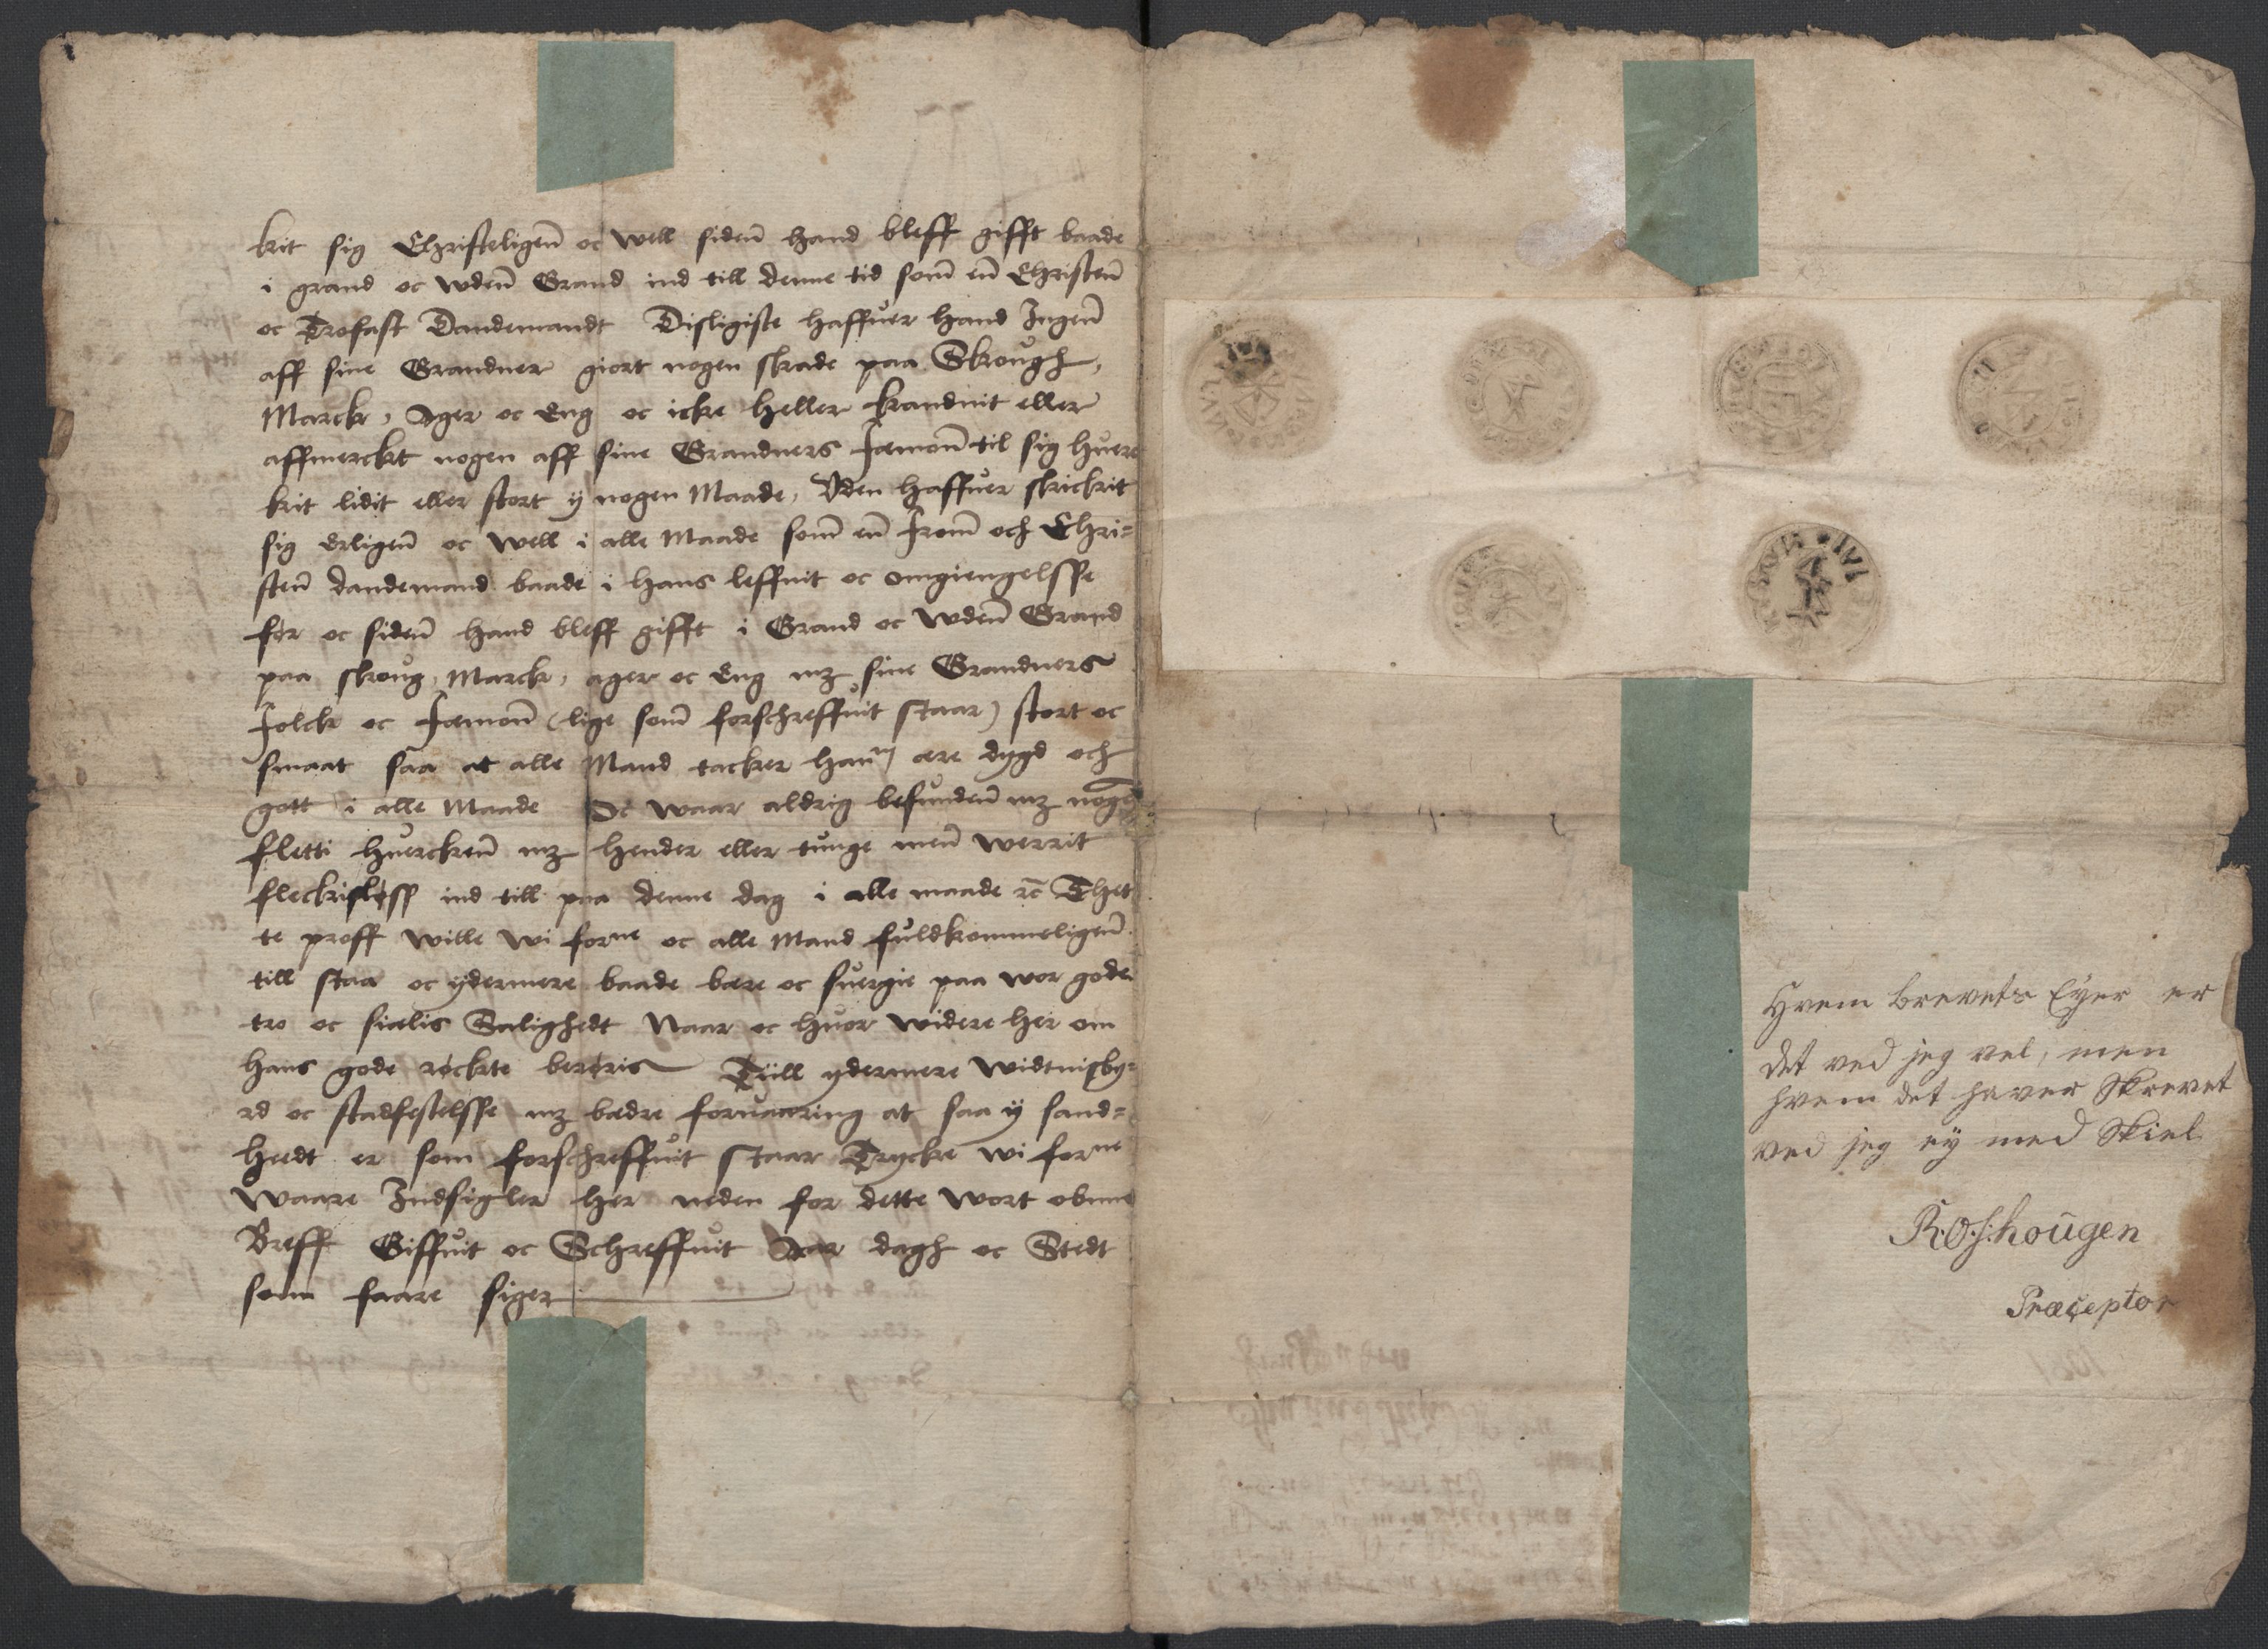 kit sig Christeligenn oc well sidenn hand bleff gifft baade
i grand oc wdenn Grand ind till denne tid som en Christenn
oc Trofast Dandemandt Disligiste haffuer hand Ingenn
aff sine Grandner giort nogen skade paa Skough,
Marck, Ager oc Eng oc icke heller krandnit eller
affmerckt nogen aff sine Grandners fæmonn til sig huer
kit lidit eller stort y nogen Maade, Uden haffuer skickit
sig erligenn oc well i alle Maade som en from och Chri-
stenn dandemand baade i hans leffnit oc omgiengelsse
før oc sidenn hand bleff gifft i Grand oc wdenn Grand
paa skoug, Marck, ager oc Eng mz sine Grandners
folck oc fæmonn (lige som forschreffuit staar) stort oc
smaat saa at alle Mand tacker hannm ære dygd och
gott i alle Maade Oc waar aldrig befundenn mz nogen
fletti huerckenn mz hender eller tunge menn werrit
fleckisløss ind till paa denne dag i alle maade rc Thet
te proff wille wi forne oc alle Mand fuldkommeligenn
till staa oc ydermere baade bære oc suergie paa wor gode
tro oc sielis Salighedt Naar oc huor widere her om
hans gode røckte berøris Till ydermere widtnisby-
rd oc stadfestelsse mz bædre foruaaring at saa y sand-
hedt er som forschreffuit staar Trycke wi forne
waare Indsigler her neden for dette wort obnne
Breff Giffuit oc Schreffuit Aar dagh oc Stedt
som faare siger
Hvem brevets Eyer er
det ved jeg vel, men
hvem det haver Skrevet
ved jeg ey med Skiel
R:O:S:hougen
Præceptor